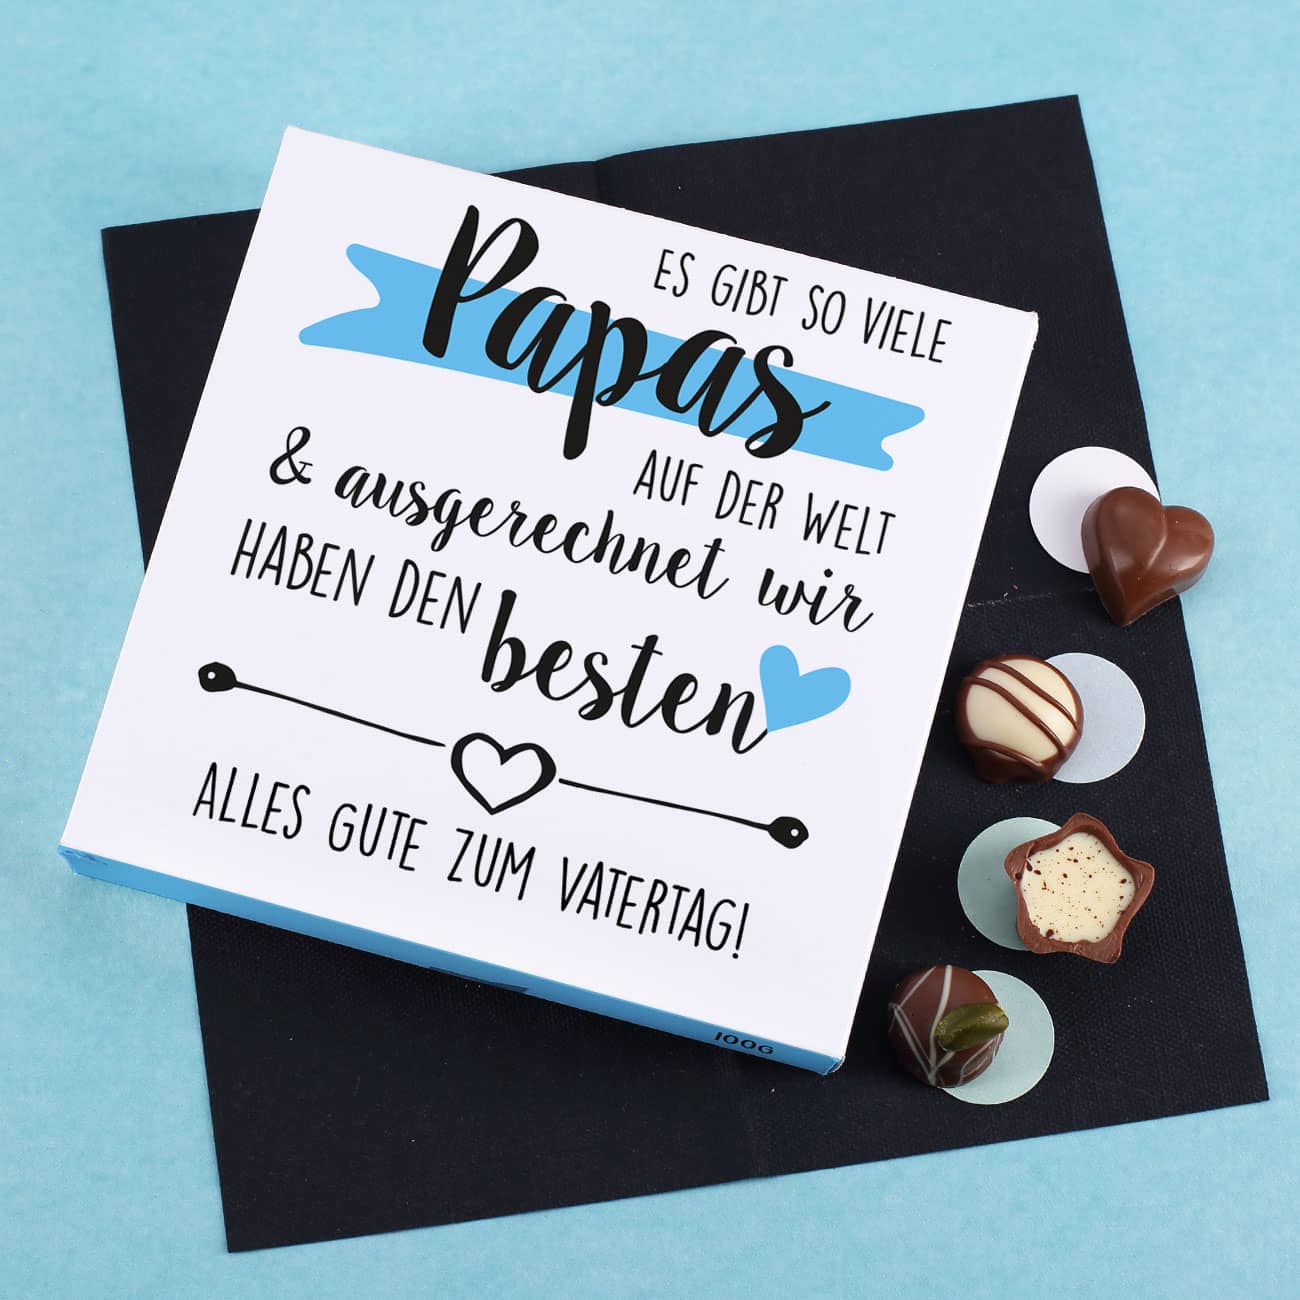 ES GIBT SO VIELE
Papas
AUF DER WELT
& ausgerechnet wir
HABEN DEN besten
ALLES GUTE ZUM VATERTAG!
100G